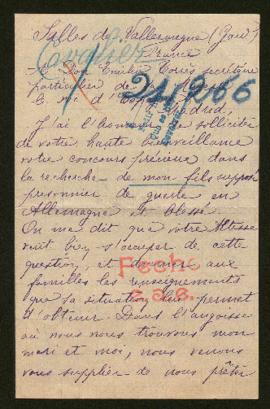 Salles de Valleraugue (Gard)
France
Cavalier
21266
A Don Emilio Torrès secrétaire
particulier de
le roi d'Espagne Madrid,
J'ai l'honneur de solliciter
de votre haute bienveillance
votre concours précieux dans
la recherche de mon fils supposé
prisonnier de guerre en
Allemagne et blessé.
On me dit que votre Altesse
veut bien s'occuper de cette
question, et donner aux
familles les renseignements
que sa situation lui permet
d'obtenir. Dans l'angoisse
où nous nous trouvons mon
mari et moi, nous venons
vous supplier de nous prêter
Fecho